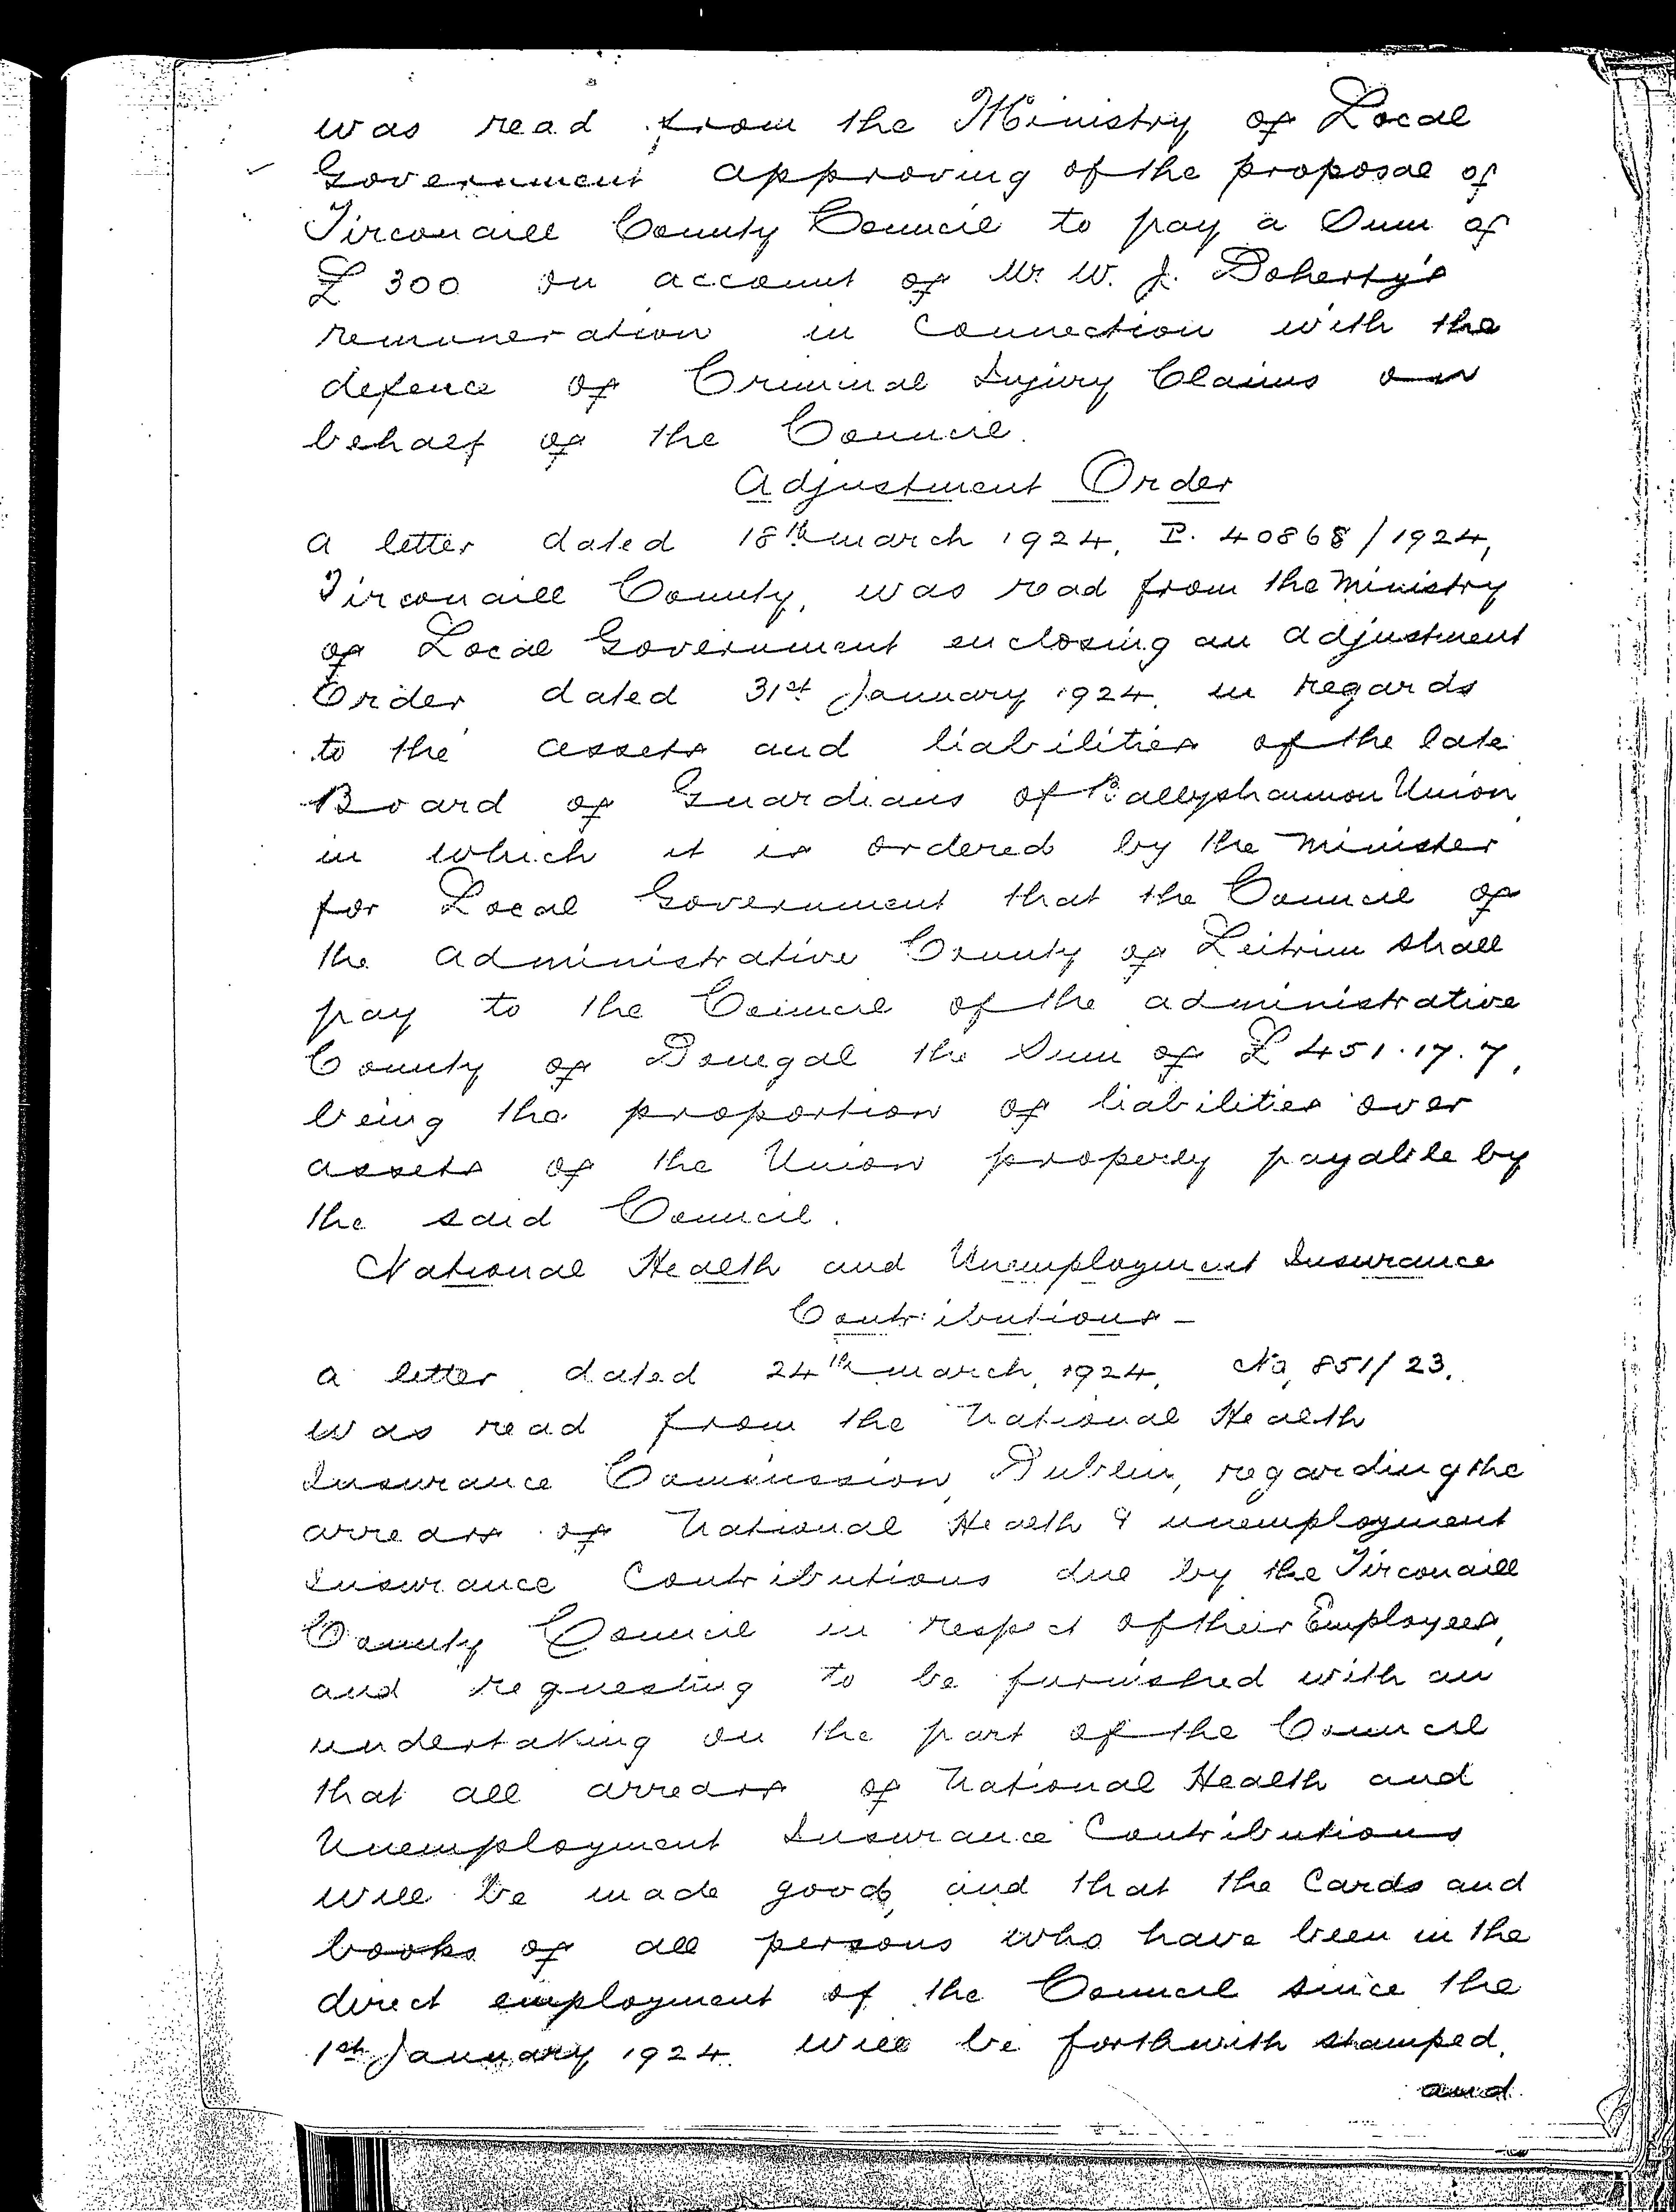 was read from the Ministry of Local
Government approving of the proposal of
Tirconaill County Council to pay a Sum of
£300 on account of Mr. W. J. Doherty's
remuneration in Connection with the
defence of Criminal Injury Claims on
behalf of the Council.
Adjustment Order
A letter dated 18th March 1924, P. 40868/1924,
Tirconaill County, was read from the Ministry
of Local Government enclosing an Adjustment
Order dated 31st January 1924, in regards
to the assets and liabilities of the late
Board of Guardians of Ballyshannon Union
in which it is ordered by the Minister
for Local Government that the Council of
the Administrative County of Leitrim shall
pay to the Council of the administrative
County of Donegal the Sum of £451.17.7,
being the proportion of liabilities over
assets of the Union properly payable by
the said Council.
National Health and Unemployment Insurance
Contributions -
A letter dated 24th March, 1924, No, 851/23,
was read from the National Health
Insurance Commission, Dublin, regarding the
arrears of National Health & unemployment
Insurance Contributions due by the Tirconaill
County Council in respect of their Employees,
and requesting to be furnished with an
undertaking on the part of the Council
that all arrears of National Health and
Unemployment Insurance Contributions
will be made good, and that the Cards and
books of all persons who have been in the
direct employment of the Council since the
1st January 1924 will be forthwith stamped,
and